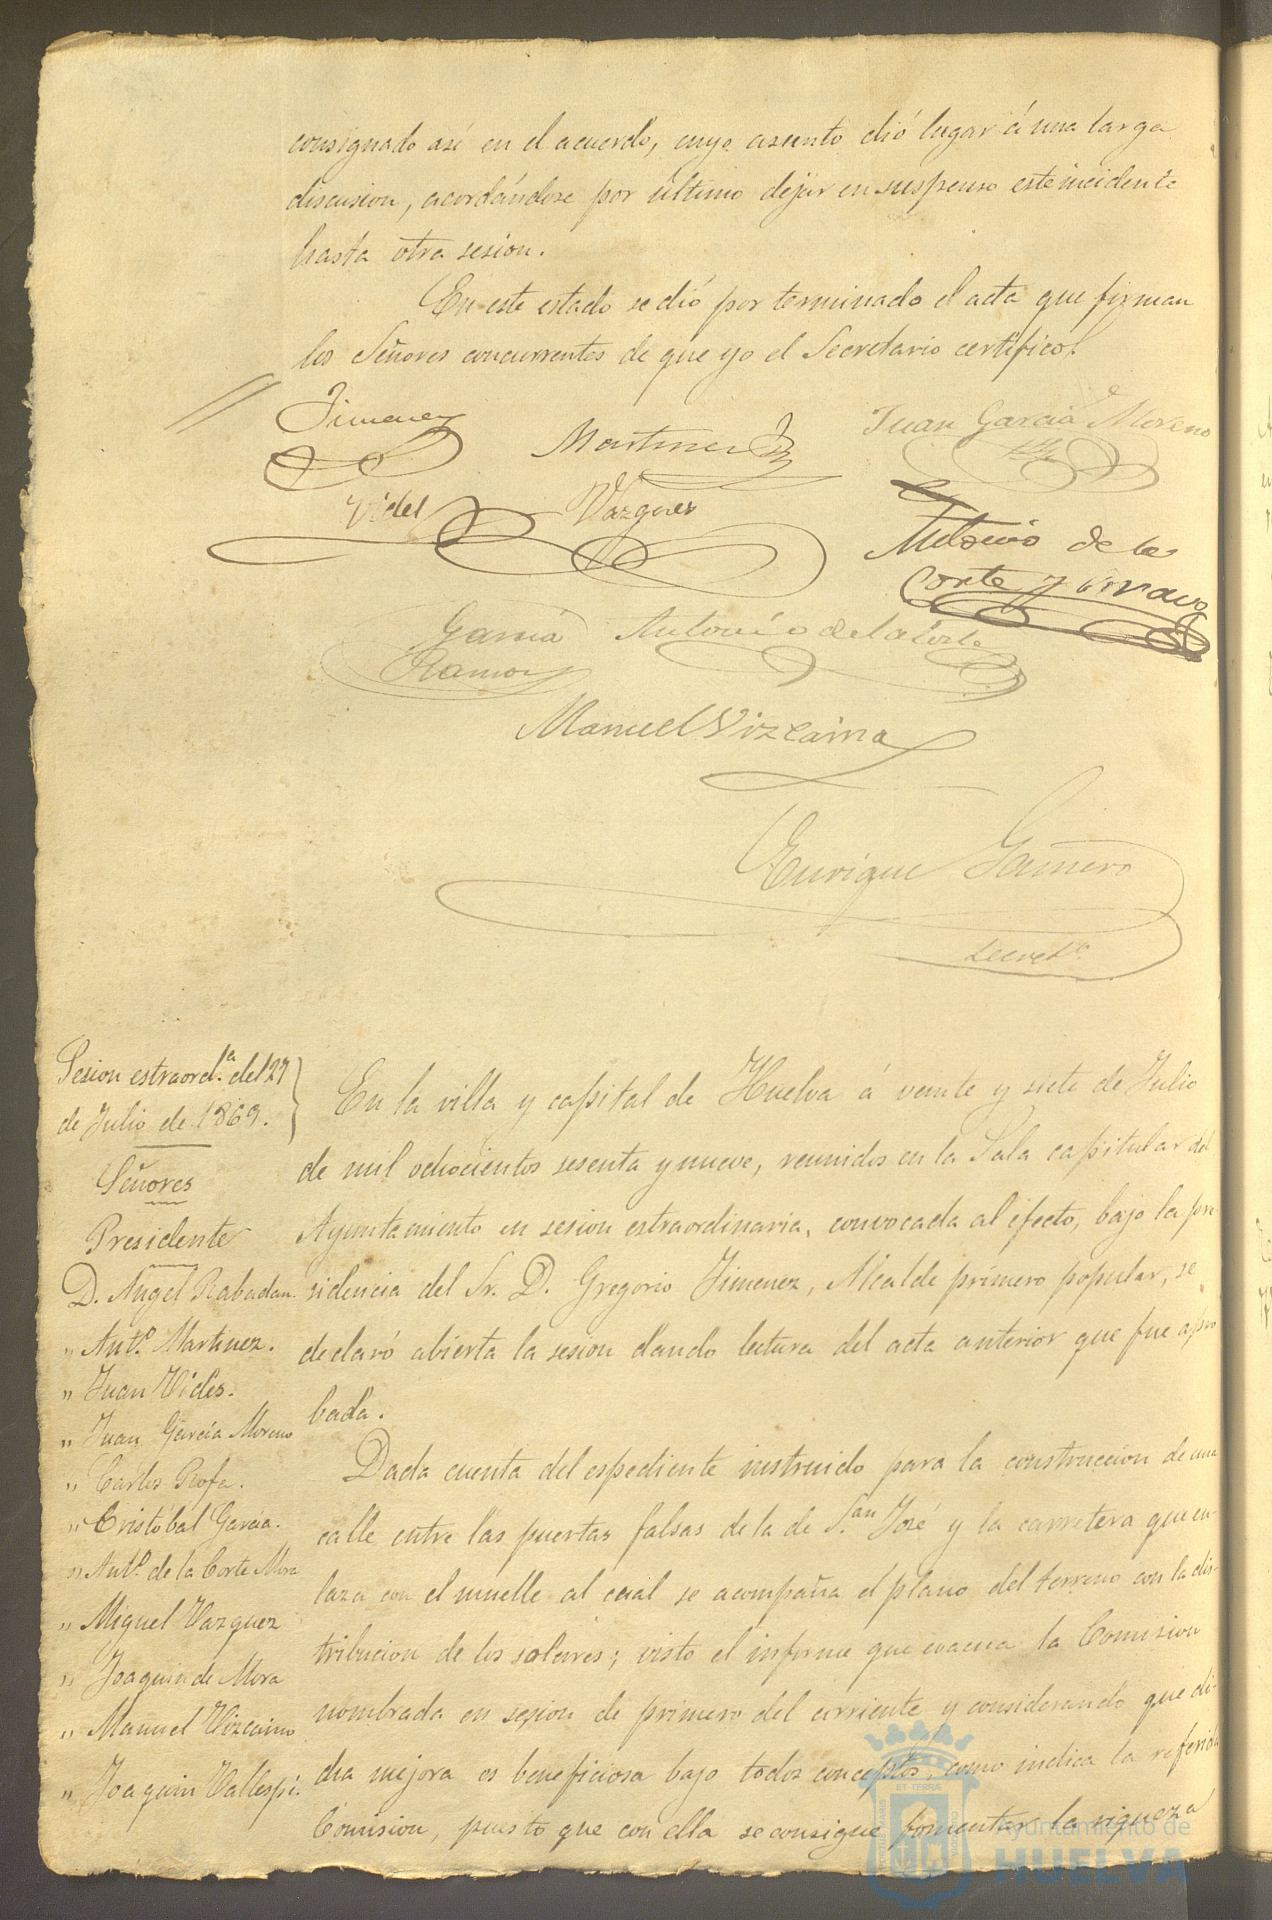 consignado así en el acuerdo, cuyo asiento dió lugar á una larga
discusion, acordándose por último dejar en suspenso este incidente
hasta otra sesion.
En este estado se dió por terminado el acta que firman
los Señores concurrentes de que yo el Secretario certifico.
Jimenez
Martinez
Juan Garcia Moreno
Vides
Vazquez
Antonio de la
Corte y Bravo
Garcia
Ramos
Antonio de la Corte
Manuel Vizcaino
Enrique Gamero
Secret.º
Sesion estraord.ª del 27
de Julio de 1869.
Señores
Presidente
D. Angel Rabadan.
" Ant.º Martinez.
" Juan Vides.
" Juan García Moreno
" Carlos Rofa.
" Cristóbal Garcia.
" Ant.º de la Corte Mora
" Miguel Vazquez
" Joaquin de Mora
" Manuel Vizcaino
" Joaquin Vallespi.
En la villa y capital de Huelva á veinte y siete de Julio
de mil ochocientos sesenta y nueve, reunidos en la Sala capitular del
Ayuntamiento en sesion estraordinaria, convocada al efecto, bajo la pre
sidencia del Sr. D. Gregorio Jimenez, Alcalde primero popular, se
declaró abierta la sesion dando lectura del acta anterior que fue apro
bada.
Dada cuenta del espediente instruido para la construccion de una
calle entre las puertas falsas de la de S.an José y la carretera que en-
laza con el muelle al cual se acompaña el plano del terreno con la dis-
tribucion de los solares; visto el informe que evacua la Comision
nombrada en sesion de primero del corriente y considerando que di-
cha mejora es beneficiosa bajo todos conceptos, como indica la referida
Comision, puesto que con ella se consigue fomentar la riqueza
Ayuntamiento de
HUELVA